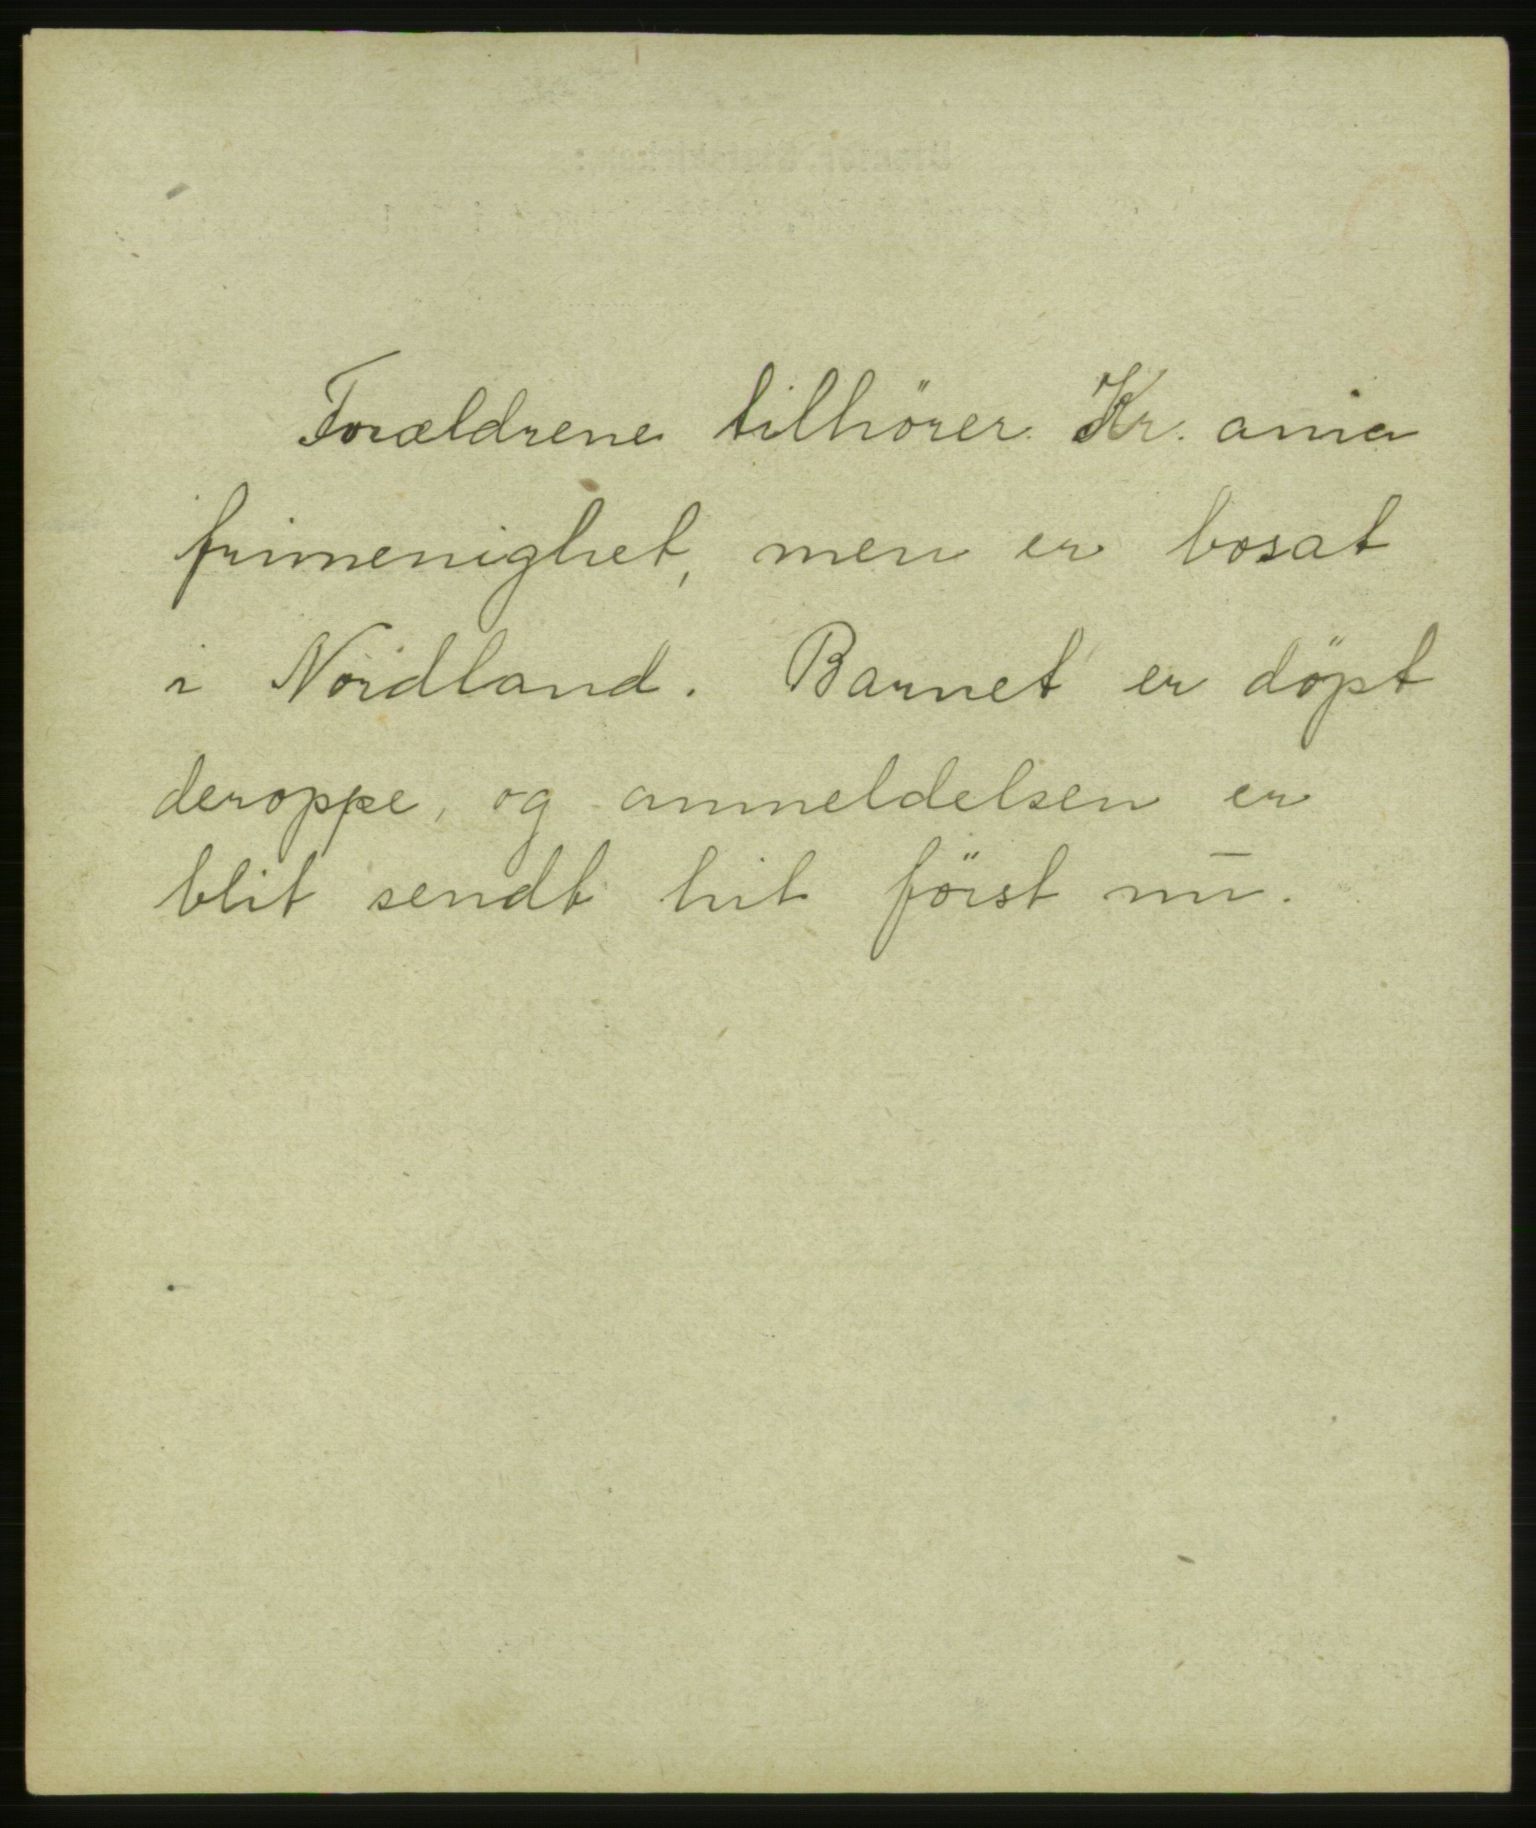 Forældrene tilhörer Kr. ania
frimenighet, men er bosat
i Nordland. Barnet er döpt
deroppe, og anmeldelsen er
blit sendt hit först nu.